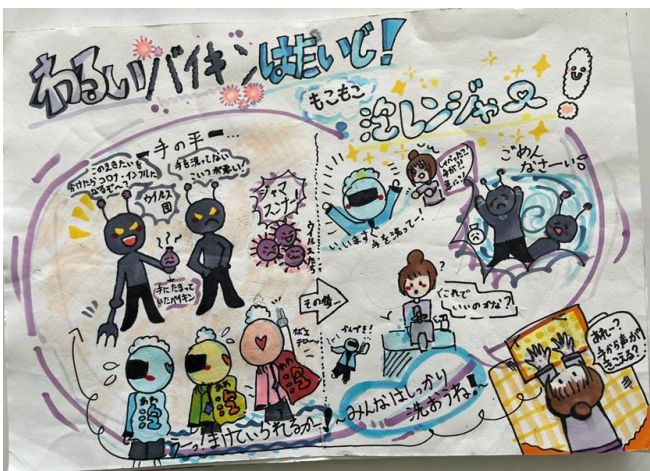 わるいバイキンはたいじ!
もこもこ
泡レンジャー!
手の平…
このえきたいを
かけたらコロナ・インフルに
なるぞ〜?
ウイルス
団
手を洗ってない
こいつが悪い!
ジャマ
スンナ!
ウイルスたち
手にたまって
いたバイキン
あわ
泡
あわ
泡
泡
うーっ!まけていられるかー!
いいますぐ
手を洗ってー!
ごめん
なさーい。
その後…
これで
いいのかな?
みんなはしっかり
洗おうね!
あれー?
手から声が
きこえる?